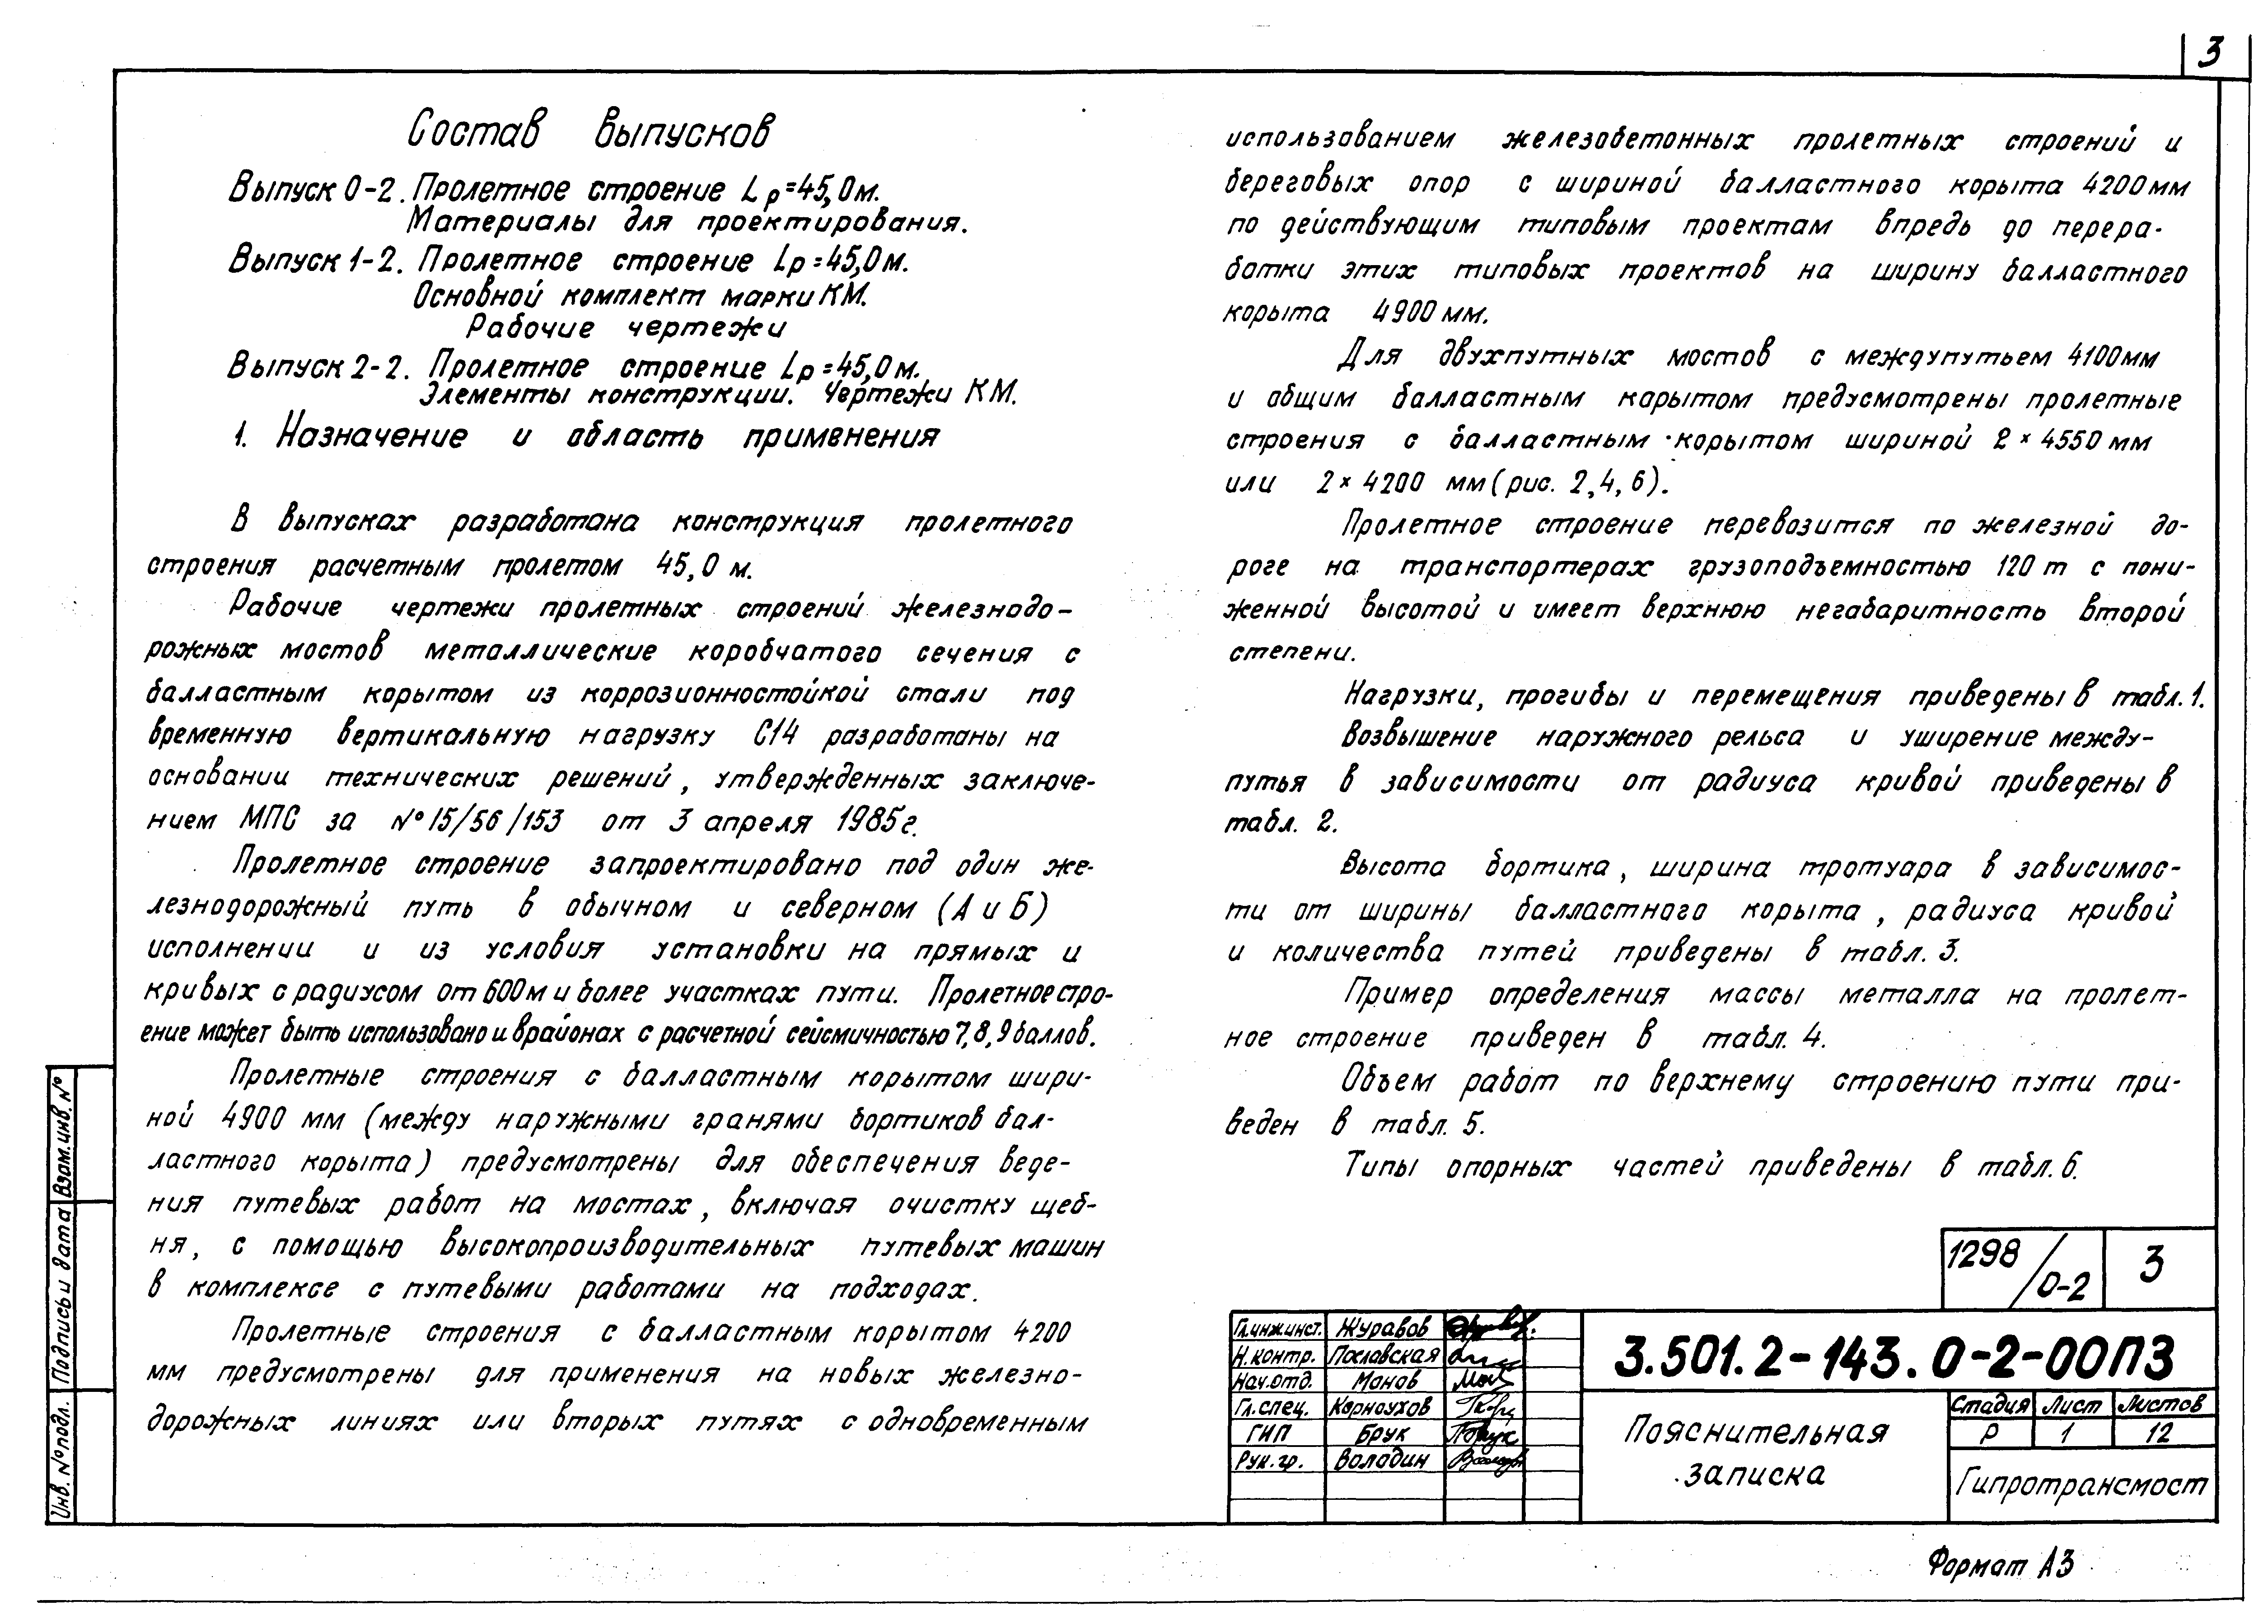 3
Состав выпусков
Выпуск 0-2. Пролетное строение Lр=45,0м.
Материалы для проектирования.
Выпуск 1-2. Пролетное строение Lр=45,0м.
Основной комплект марки КМ.
Рабочие чертежи
Выпуск 2-2. Пролетное строение Lр=45,0м.
Элементы конструкции. Чертежи КМ.
1. Назначение и область применения
В выпусках разработана конструкция пролетного
строения расчетным пролетом 45,0 м.
Рабочие чертежи пролетных строений железнодо-
рожных мостов металлические коробчатого сечения с
балластным корытом из коррозионностойкой стали под
временную вертикальную нагрузку С14 разработаны на
основании технических решений, утвержденных заключе-
нием МПС за №15/56/153 от 3 апреля 1985г.
Пролетное строение запроектировано под один же-
лезнодорожный путь в обычном и северном (А и Б)
исполнении и из условия установки на прямых и
кривых с радиусом от 600м и более участках пути. Пролетное стро-
ение может быть использовано и в районах с расчетной сейсмичностью 7,8,9 баллов.
Пролетные строения с балластным корытом шири-
ной 4900 мм (между наружными гранями бортиков бал-
ластного корыта) предусмотрены для обеспечения веде-
ния путевых работ на мостах, включая очистку щеб-
ня, с помощью высокопроизводительных путевых машин
в комплексе с путевыми работами на подходах.
Пролетные строения с балластным корытом 4200
мм предусмотрены для применения на новых железно-
дорожных линиях или вторых путях с одновременным
использованием железобетонных пролетных строений и
береговых опор с шириной балластного корыта 4200мм
по действующим типовым проектам впредь до перера-
ботки этих типовых проектов на ширину балластного
корыта 4900 мм.
Для двухпутных мостов с междупутьем 4100мм
и общим балластным карытом предусмотрены пролетные
строения с балластным корытом шириной 2×4550 мм
или 2×4200 мм (рис. 2,4,6).
Пролетное строение перевозится по железной до-
роге на транспортерах грузоподъемностью 120т с пони-
женной высотой и имеет верхнюю негабаритность второй
степени.
Нагрузки, прогибы и перемещения приведены в табл.1.
Возвышение наружного рельса и уширение между-
путья в зависимости от радиуса кривой приведены в
табл. 2.
Высота бортика, ширина тротуара в зависимос-
ти от ширины балластного корыта, радиуса кривой
и количества путей приведены в табл. 3.
Пример определения массы металла на пролет-
ное строение приведен в табл. 4.
Объем работ по верхнему строению пути при-
веден в табл. 5.
Типы опорных частей приведены в табл. 6.
1298/0-2 3
Гл.инж.инст. Журавов
Н.контр. Пославская
Нач.отд. Монов
Гл.спец. Корноухов
ГИП Брук
Рук.гр. Володин
3.501.2-143.0-2-00ПЗ
Пояснительная
записка
Стадия Лист Листов
Р 1 12
Гипротрансмост
Формат А3
Инв. № подл. Подпись и дата Взам. инв. №